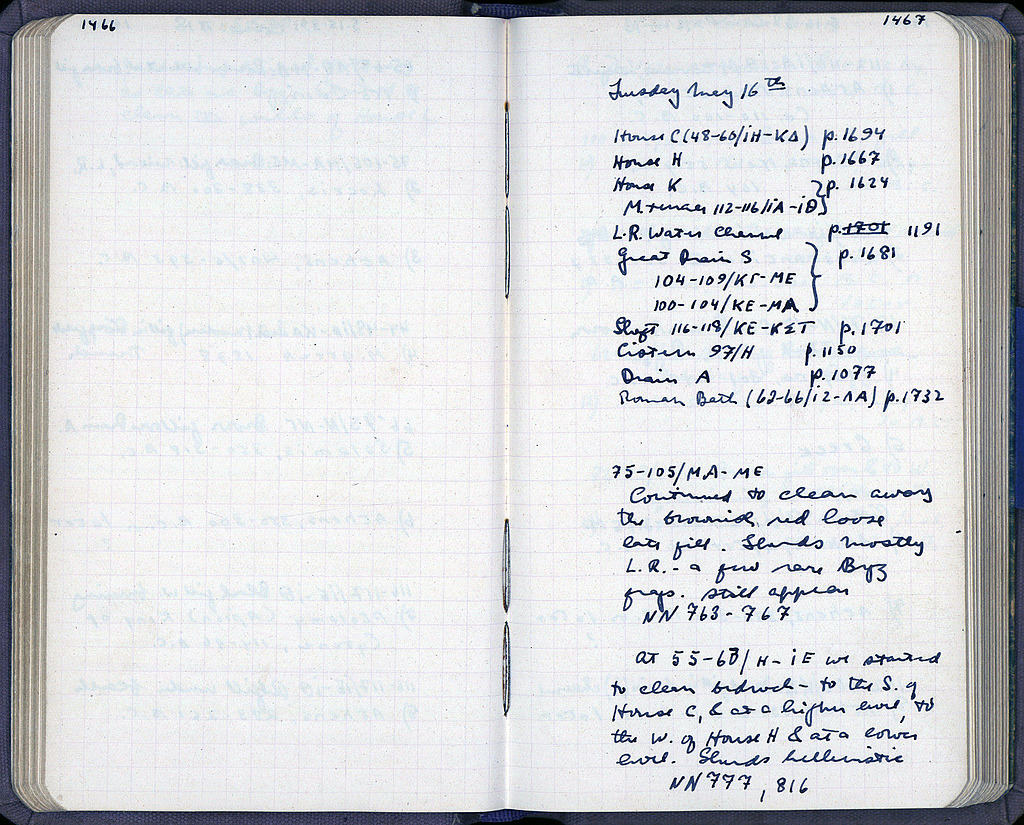 1466
1467
Tuesday May 16th
House C (48-60/ΙΗ-ΚΔ) p. 1694
House H p. 1667
House K } p. 1624
M. 112-116/ΙΑ-ΙΘ
L.R. Water Channel p. 1701 1191
Great Drain S } p. 1681
104-109/ΚΓ-ΜΕ
100-104/ΚΕ-ΜΑ
Shaft 116-118/ΚΕ-ΚΣΤ p. 1701
Cistern 97/Η p. 1150
Drain A p. 1077
Roman Bath (62-66/ΙΖ-ΛΑ) p. 1732
75-105/ΜΑ-ΜΕ
Continued to clean away
the brownish red loose
late fill. Sherds mostly
L.R. - a few rare Byz
frags. still appear
NN 763-767
At 55-63/Η-ΙΕ we started
to clean bedrock to the S. of
House C, & at a higher level, to
the W. of House H & at a lower
level. Sherds hellenistic
NN 777, 816